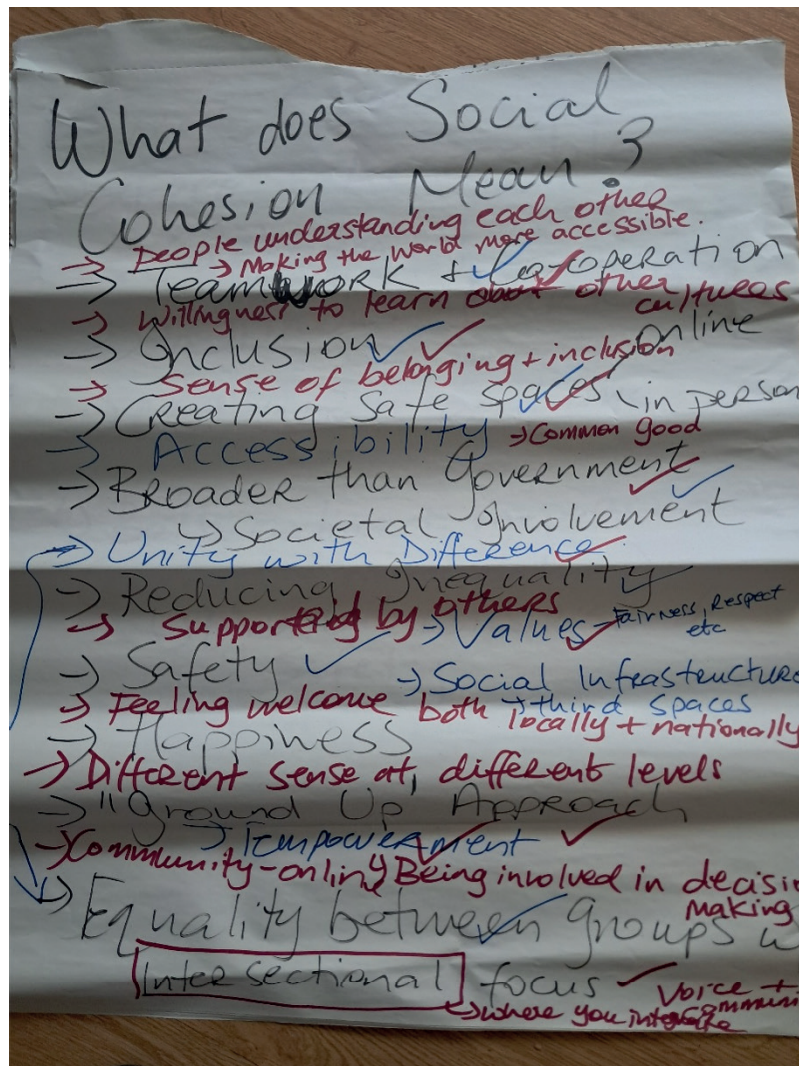 What does Social
Cohesion Mean?
→ People understanding each other
→ Making the World more accessible.
→ Teamwork + Co-operation
→ Willingness to learn about other cultures
→ Inclusion
→ Sense of belonging + inclusion
→ Creating Safe Spaces online
in person
→ Accessibility
→ Common good
→ Broader than Government
↳ Societal Involvement
→ Unity with Difference
→ Reducing Inequality
→ Supported by others
→ Values - Fairness, Respect
etc
→ Safety
→ Social Infrastructure
→ third spaces
→ Feeling welcome both locally + nationally
→ Happiness
→ Different sense at different levels
→ "Ground Up" Approach
→ Empowerment
→ Community-online
Being involved in decisi
making
→ Equality between Groups w
Intersectional focus
Voice +
→ where you